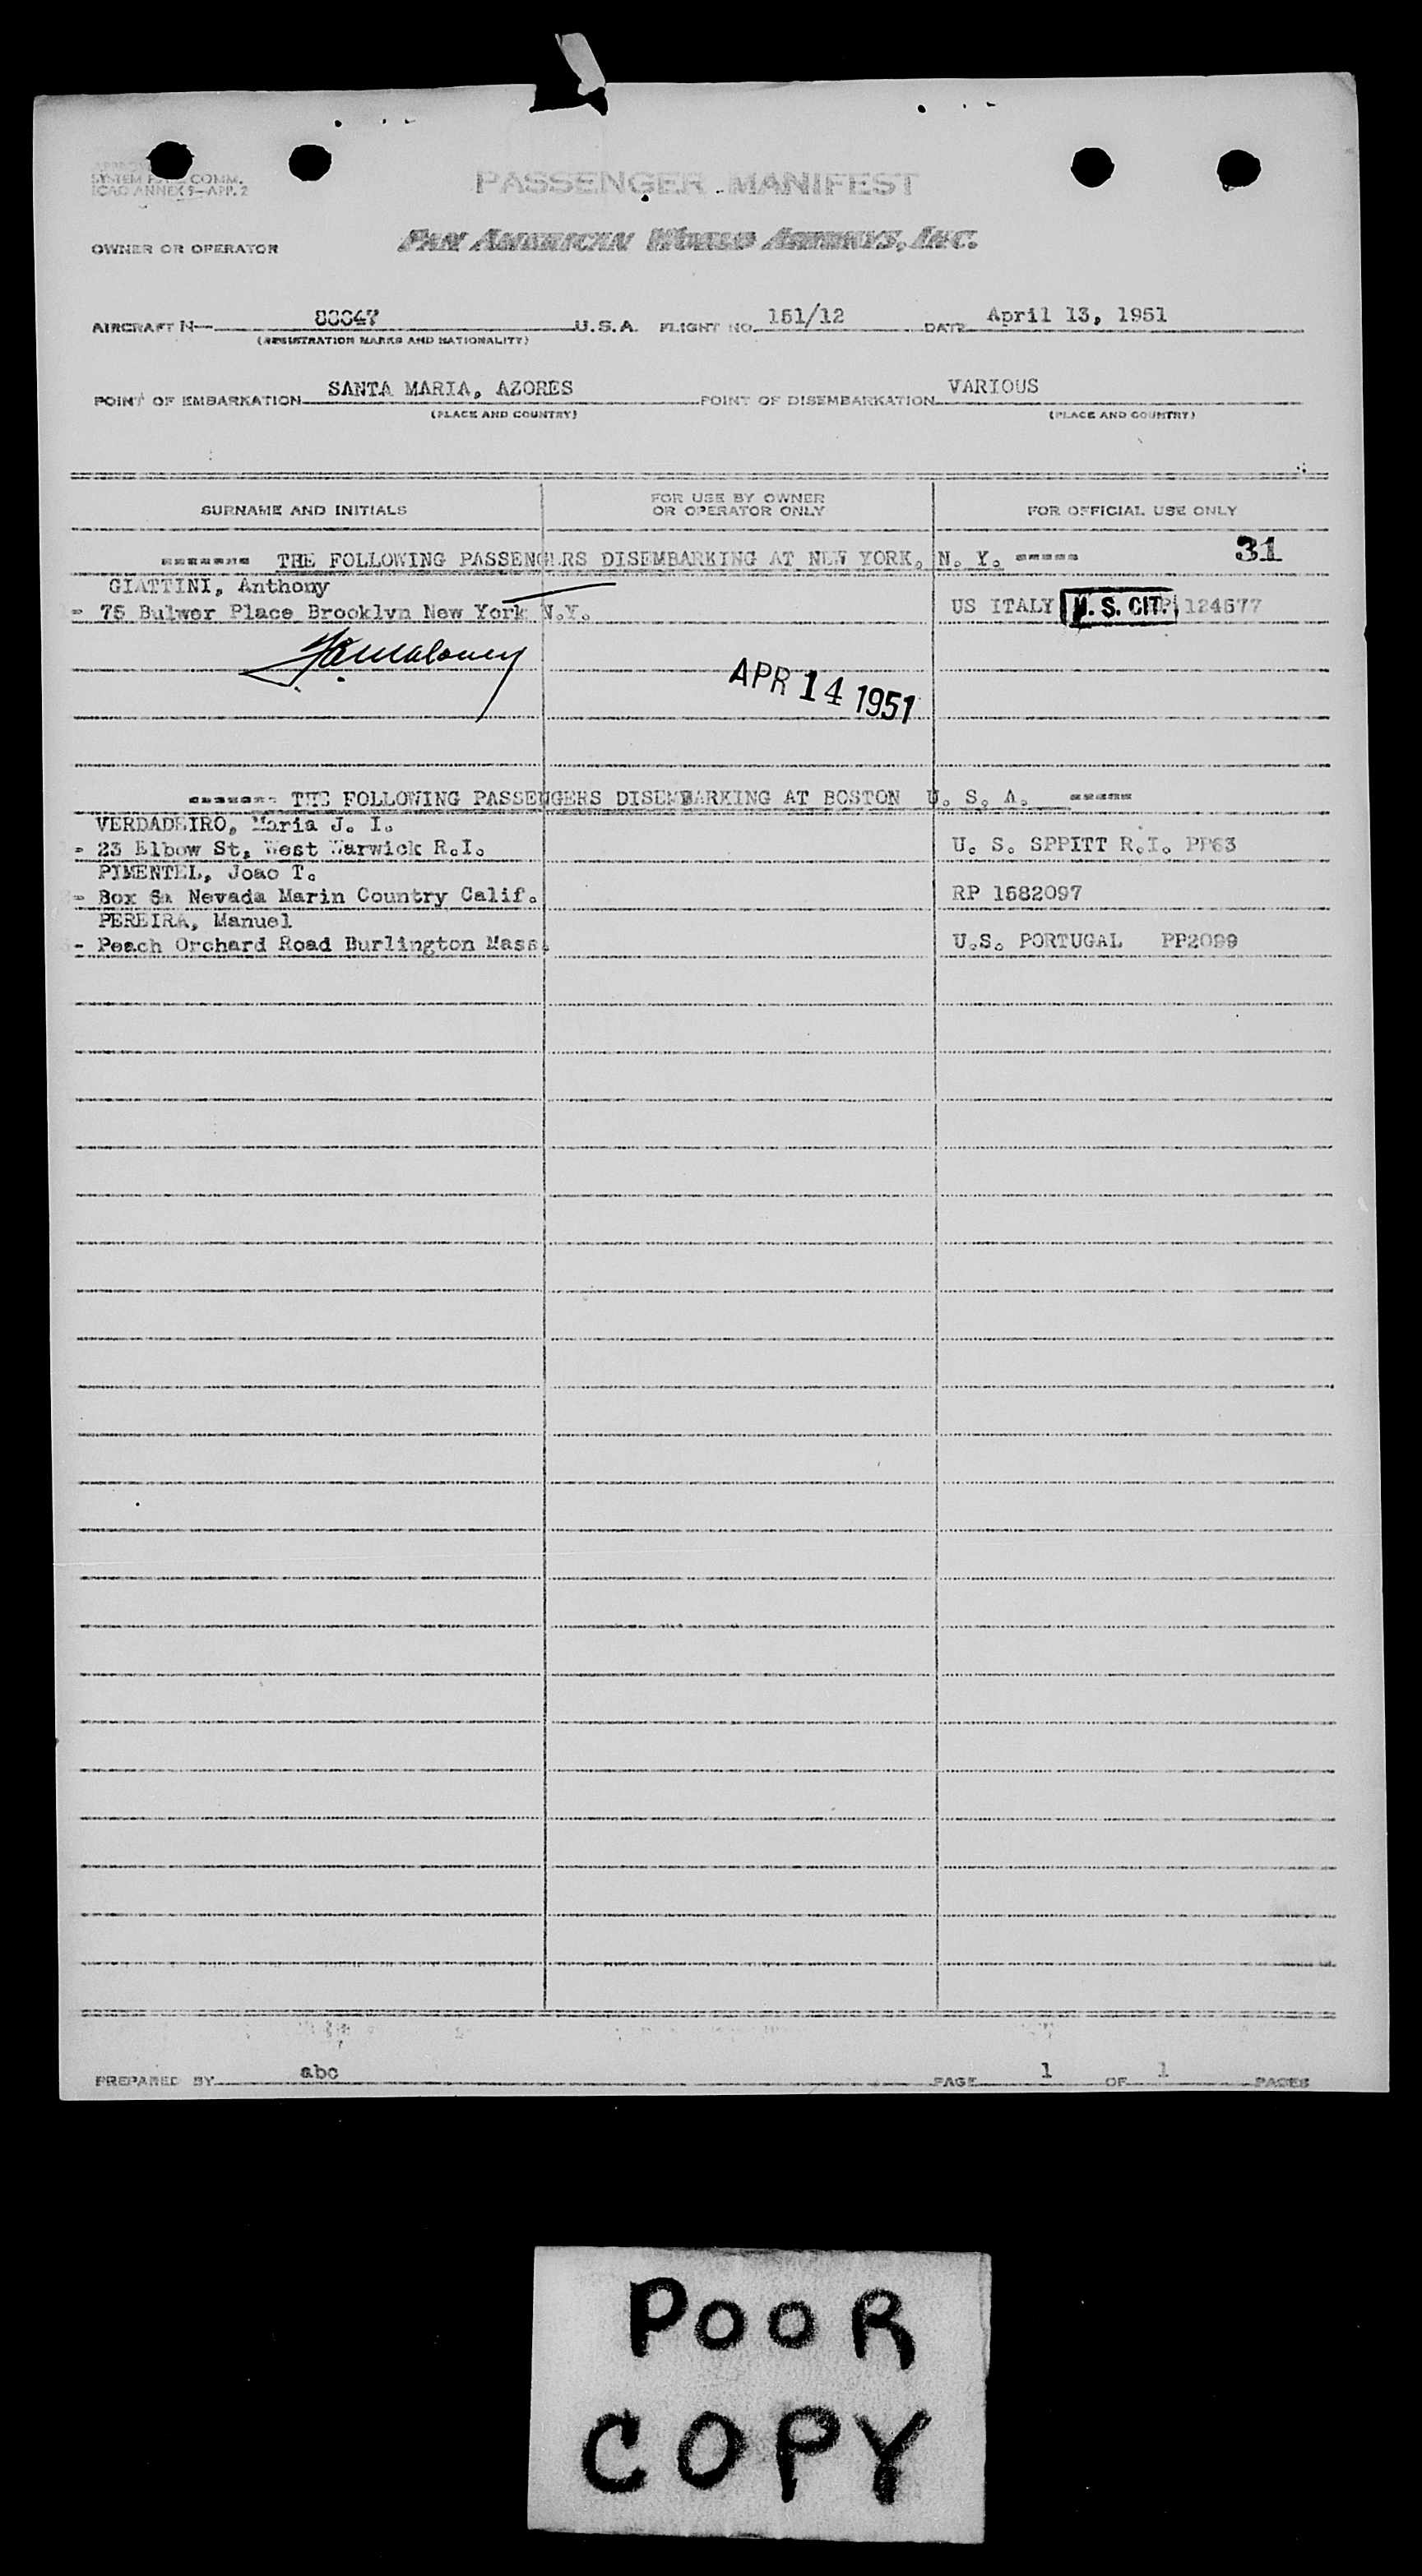 SYSTEM COMM.
ICAO ANNEX 9-APP. 2
PASSENGER MANIFEST
OWNER OR OPERATOR
PAN AMERICAN WORLD AIRWAYS, INC.
AIRCRAFT N- U.S.A. FLIGHT NO. 151/12 DATE April 13, 1951
(REGISTRATION MARKS AND NATIONALITY)
POINT OF EMBARKATION SANTA MARIA, AZORES POINT OF DISEMBARKATION VARIOUS
(PLACE AND COUNTRY) (PLACE AND COUNTRY)
SURNAME AND INITIALS
FOR USE BY OWNER
OR OPERATOR ONLY
FOR OFFICIAL USE ONLY
------- THE FOLLOWING PASSENGERS DISEMBARKING AT NEW YORK, N. Y. ----- 31
GIATTINI, Anthony
- 75 Bulwer Place Brooklyn New York N.Y. US ITALY U. S. CIT. 124577
APR 14 1951
------- THE FOLLOWING PASSENGERS DISEMBARKING AT BOSTON U. S. A. -----
VERDADEIRO, Maria J. I.
- 23 Elbow St, West Warwick R.I. U. S. SPPITT R.I. PP63
PIMENTEL, Joao T.
- Box Nevada Marin Country Calif. RP 1582097
PEREIRA, Manuel
- Peach Orchard Road Burlington Mass. U.S. PORTUGAL PP2099
PREPARED BY abc PAGE 1 OF 1 PAGES
POOR
COPY